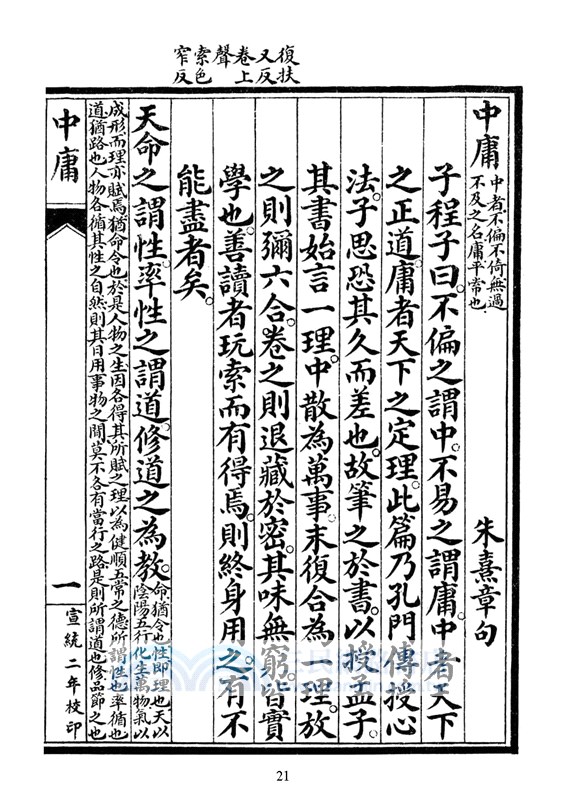 復扶
又反
卷上
聲
索色
窄反
中庸
中者不偏不倚無過
不及之名庸平常也
朱熹章句
子程子曰。不偏之謂中。不易之謂庸。中者天下
之正道。庸者天下之定理。此篇乃孔門傳授心
法。子思恐其久而差也。故筆之於書。以授孟子。
其書始言一理。中散為萬事。末復合為一理。放
之則彌六合。卷之則退藏於密。其味無窮。皆實
學也。善讀者玩索而有得焉。則終身用之。有不
能盡者矣。
天命之謂性。率性之謂道。修道之為教。
命猶令也性即理也天以
陰陽五行化生萬物氣以
成形而理亦賦焉猶命令也於是人物之生因各得其所賦之理以為健順五常之德所謂性也率循也
道猶路也人物各循其性之自然則其日用事物之間莫不各有當行之路是則所謂道也修品節之也
中庸
一
宣統二年校印
21